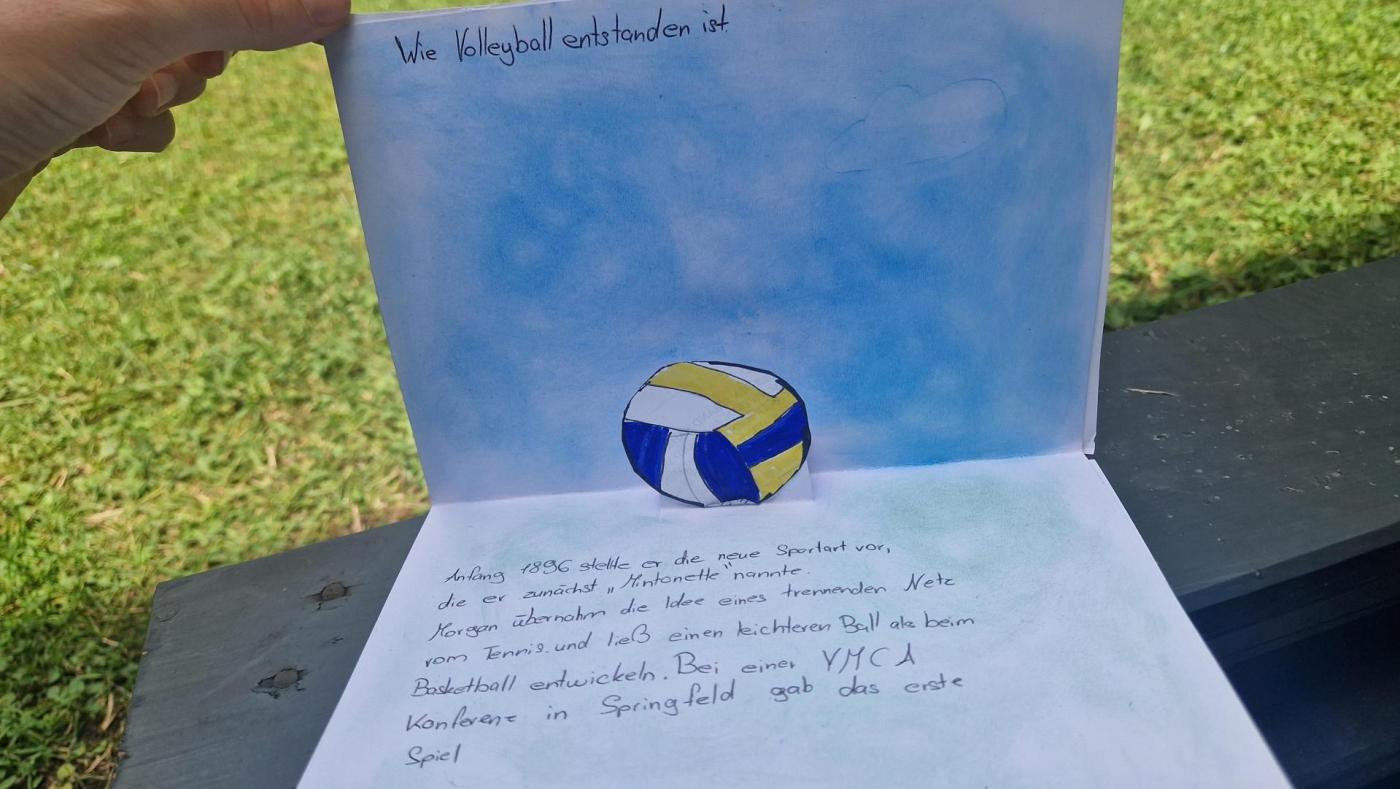 Wie Volleyball entstanden ist.
Anfang 1896 stellte er die neue Sportart vor,
die er zunächst „Mintonette" nannte.
Morgan übernahm die Idee eines trennenden Netz
vom Tennis. und ließ einen leichteren Ball als beim
Basketball entwickeln. Bei einer YMCA
Konferenz in Springfeld gab das erste
Spiel